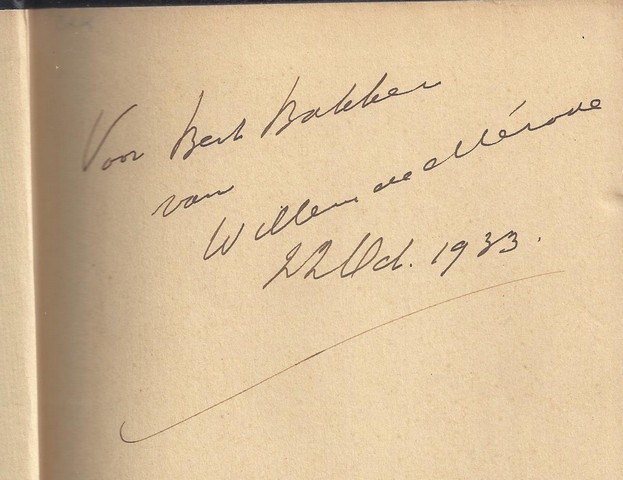 Voor Bert Bakker
van
Willem de Mérode
22 Oct. 1933.